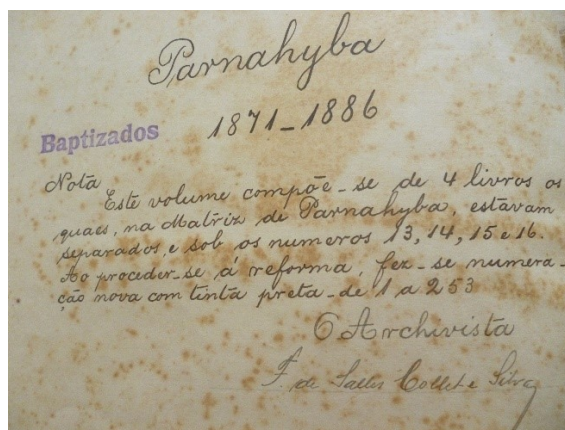 Parnahyba
Baptizados
1871_1886
Nota
Este volume compõe_se de 4 livros os
quaes, na Matriz de Parnahyba, estavam
separados, e sob os numeros 13, 14, 15 e 16.
Ao proceder_se á reforma, fez_se numera_
ção nova com tinta preta_de 1 a 253
O Archivista
F. de Salles Collet e Silva